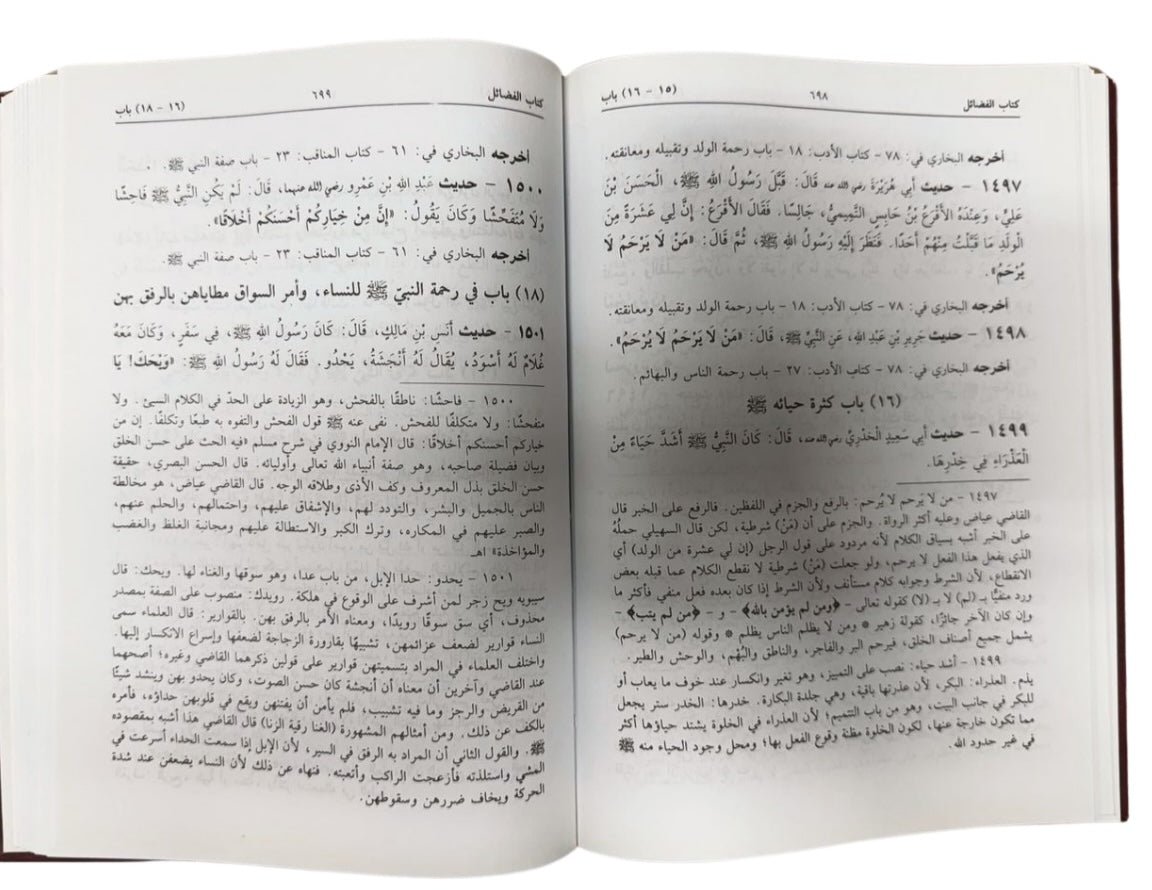 كتاب الفضائل
٦٩٨
(١٥ - ١٦) باب
أخرجه البخاري في: ٧٨ - كتاب الأدب: ١٨ - باب رحمة الولد وتقبيله ومعانقته.
١٤٩٧ - حديث أَبِي هُرَيْرَةَ رضي الله عنه قَالَ: قَبَّلَ رَسُولُ اللهِ ﷺ، الْحَسَنَ بْنَ
عَلِيٍّ، وَعِنْدَهُ الأَقْرَعُ بْنُ حَابِسٍ التَّمِيمِيُّ، جَالِسًا. فَقَالَ الأَقْرَعُ: إِنَّ لِي عَشَرَةً مِنَ
الْوَلَدِ مَا قَبَّلْتُ مِنْهُمْ أَحَدًا. فَنَظَرَ إِلَيْهِ رَسُولُ اللهِ ﷺ، ثُمَّ قَالَ: «مَنْ لَا يَرْحَمُ لَا
يُرْحَمُ».
أخرجه البخاري في: ٧٨ - كتاب الأدب: ١٨ - باب رحمة الولد وتقبيله ومعانقته.
١٤٩٨ - حديث جَرِيرِ بْنِ عَبْدِ اللهِ، عَنِ النَّبِيِّ ﷺ، قَالَ: «مَنْ لَا يَرْحَمُ لَا يُرْحَمُ».
أخرجه البخاري في: ٧٨ - كتاب الأدب: ٢٧ - باب رحمة الناس والبهائم.
(١٦) باب كثرة حيائه ﷺ
١٤٩٩ - حديث أَبِي سَعِيدٍ الْخُدْرِيِّ رضي الله عنه، قَالَ: كَانَ النَّبِيُّ ﷺ أَشَدَّ حَيَاءً مِنَ
الْعَذْرَاءِ فِي خِدْرِهَا.
١٤٩٧ - من لا يَرحم لا يُرحم: بالرفع والجزم في اللفظين. فالرفع على الخبر قال
القاضي عياض وعليه أكثر الرواة. والجزم على أن (مَنْ) شرطية، لكن قال السهيلي حملُهُ
على الخبر أشبه بسياق الكلام لأنه مردود على قول الرجل (إن لي عشرة من الولد) أي
الذي يفعل هذا الفعل لا يرحم، ولو جعلت (مَنْ) شرطية لا نقطع الكلام عما قبله بعض
الانقطاع، لأن الشرط وجوابه كلام مستأنف ولأن الشرط إذا كان بعده فعل منفي فأكثر ما
ورد منفيًّا بـ (لم) لا بـ (لا) كقوله تعالى - ﴿ومن لم يؤمن بالله﴾ - و - ﴿من لم يتب﴾ -
وإن كان الآخر جائزًا، كقولة زهير * ومن لا يظلم الناس يظلم * وقوله (من لا يرحم)
يشمل جميع أصناف الخلق، فيرحم البر والفاجر، والناطق والبُهْم، والوحش والطير.
١٤٩٩ - أشد حياء: نصب على التمييز، وهو تغير وانكسار عند خوف ما يعاب أو
يذم. العذراء: البكر، لأن عذرتها باقية، وهي جلدة البكارة. خدرها: الخدر ستر يجعل
للبكر في جانب البيت، وهو من باب التتميم؛ لأن العذراء في الخلوة يشتد حياؤها أكثر
مما تكون خارجة عنها، لكون الخلوة مظنة وقوع الفعل بها؛ ومحل وجود الحياء منه ﷺ
في غير حدود الله.
كتاب الفضائل
٦٩٩
(١٦ - ١٨) باب
أخرجه البخاري في: ٦١ - كتاب المناقب: ٢٣ - باب صفة النبي ﷺ.
١٥٠٠ - حديث عَبْدِ اللهِ بْنِ عَمْرٍو رضي الله عنهما، قَالَ: لَمْ يَكُنِ النَّبِيُّ ﷺ فَاحِشًا
وَلَا مُتَفَحِّشًا وَكَانَ يَقُولُ: «إِنَّ مِنْ خِيَارِكُمْ أَحْسَنَكُمْ أَخْلَاقًا».
أخرجه البخاري في: ٦١ - كتاب المناقب: ٢٣ - باب صفة النبي ﷺ.
(١٨) باب في رحمة النبيّ ﷺ للنساء، وأمر السواق مطاياهن بالرفق بهن
١٥٠١ - حديث أَنَسِ بْنِ مَالِكٍ، قَالَ: كَانَ رَسُولُ اللهِ ﷺ، فِي سَفَرٍ، وَكَانَ مَعَهُ
غُلَامٌ لَهُ أَسْوَدُ، يُقَالُ لَهُ أَنْجَشَةُ، يَحْدُو. فَقَالَ لَهُ رَسُولُ اللهِ ﷺ: «وَيْحَكَ! يَا
١٥٠٠ - فاحشًا: ناطقًا بالفحش، وهو الزيادة على الحدّ في الكلام السيئ. ولا
متفحشًا: ولا متكلفًا للفحش. نفى عنه ﷺ قول الفحش والتفوه به طبعًا وتكلفًا. إن من
خياركم أحسنكم أخلاقًا: قال الإمام النووي في شرح مسلم «فيه الحث على حسن الخلق
وبيان فضيلة صاحبه، وهو صفة أنبياء الله تعالى وأوليائه. قال الحسن البصري، حقيقة
حسن الخلق بذل المعروف وكف الأذى وطلاقه الوجه. قال القاضي عياض، هو مخالطة
الناس بالجميل والبشر، والتودد لهم، والإشفاق عليهم، واحتمالهم، والحلم عنهم،
والصبر عليهم في المكاره، وترك الكبر والاستطالة عليهم ومجانبة الغلظ والغضب
والمؤاخذة» اهـ
١٥٠١ - يحدو: حدا الإبل، من باب عدا، وهو سوقها والغناء لها. ويحك: قال
سيبويه ويح زجر لمن أشرف على الوقوع في هلكة. رويدك: منصوب على الصفة بمصدر
محذوف، أي سق سوقًا رويدًا، ومعناه الأمر بالرفق بهن. بالقوارير: قال العلماء سمى
النساء قوارير لضعف عزائمهن، تشبيهًا بقارورة الزجاجة لضعفها وإسراع الانكسار إليها.
واختلف العلماء في المراد بتسميتهن قوارير على قولين ذكرهما القاضي وغيره؛ أصحهما
عند القاضي وآخرين أن معناه أن أنجشة كان حسن الصوت، وكان يحدو بهن وينشد شيئًا
من القريض والرجز وما فيه تشبيب، فلم يأمن أن يفتنهن ويقع في قلوبهن حداؤه، فأمره
بالكف عن ذلك. ومن أمثالهم المشهورة (الغنا رقية الزنا) قال القاضي هذا أشبه بمقصوده
ﷺ. والقول الثاني أن المراد به الرفق في السير، لأن الإبل إذا سمعت الحداء أسرعت في
المشي واستلذته فأزعجت الراكب وأتعبته. فنهاه عن ذلك لأن النساء يضعفن عند شدة
الحركة ويخاف ضررهن وسقوطهن.